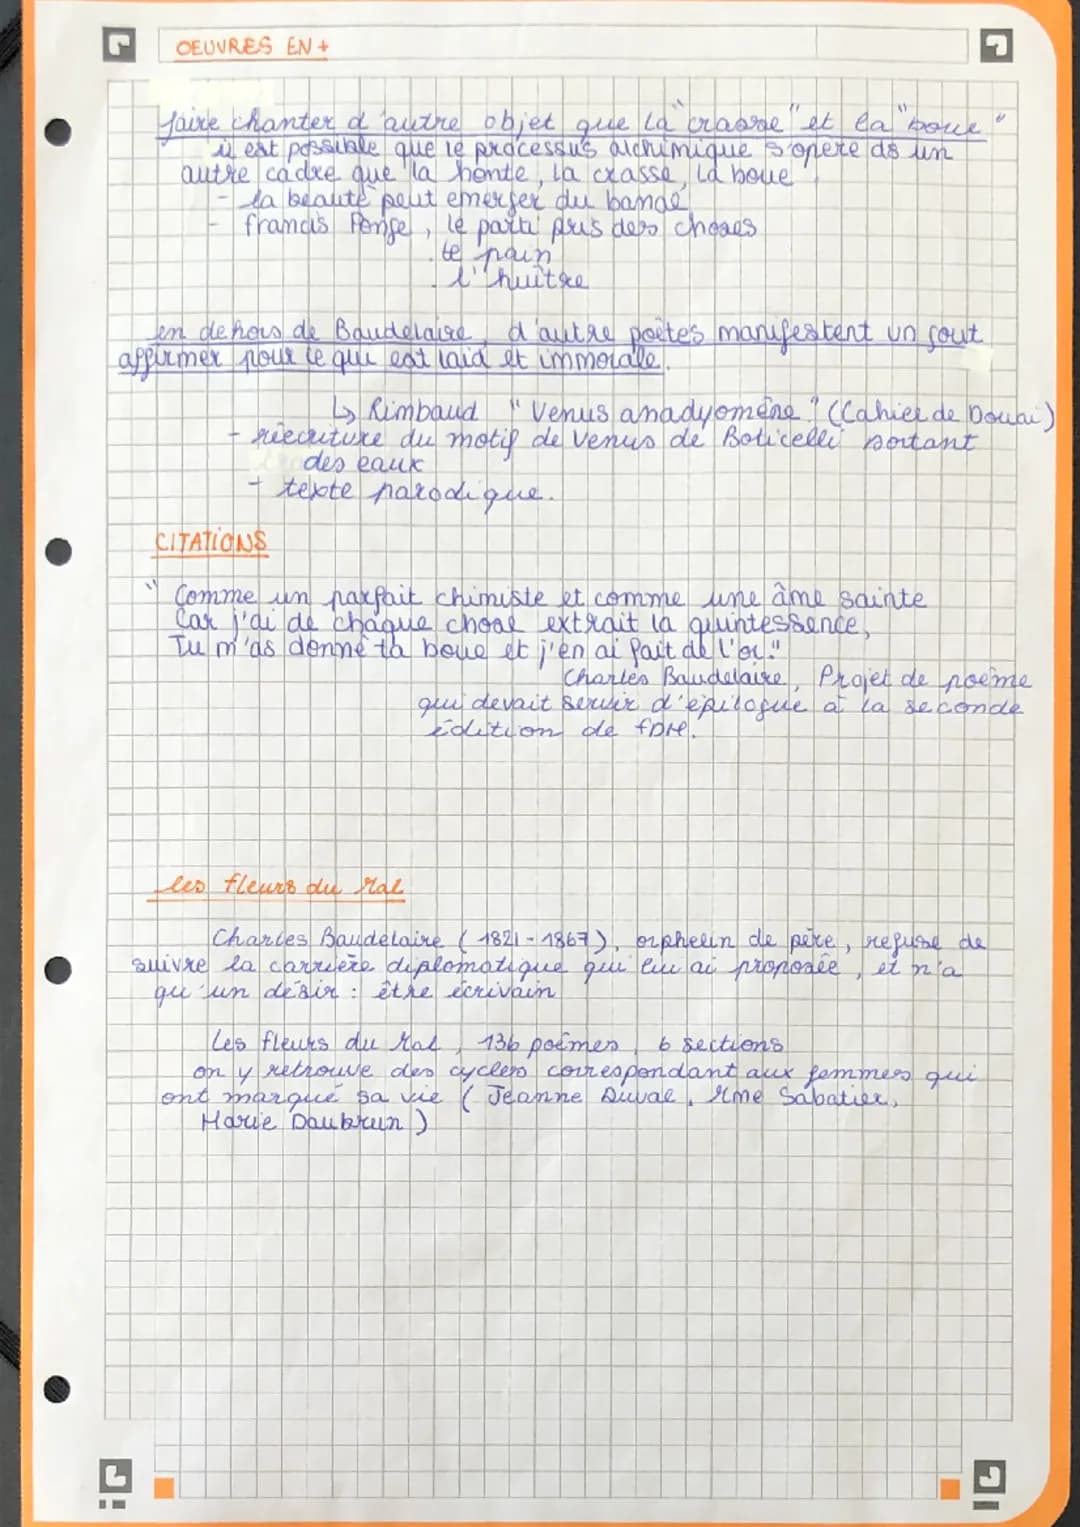 OEUVRES EN +
faire chanter d'autre objet que la "crasse" et la "boue"
il est possible que le processus alchimique s'opère ds un
autre cadre que "la honte, la crasse, la boue"
- la beauté peut emerger du banal
- francis Ponge, le parti pris des choses
. le pain
. l'huître
en dehors de Baudelaire, d'autre poètes manifestent un gout
affirmer pour ce qui est laid et immorale.
↳ Rimbaud "Venus anadyomène" (Cahier de Douai)
- réecriture du motif de Venus de Boticelli sortant
des eaux
- texte parodique.
CITATIONS
" Comme un parfait chimiste et comme une âme sainte
Car j'ai de chaque chose extrait la quintessence,
Tu m'as donné ta boue et j'en ai fait de l'or."
Charles Baudelaire, Projet de poème
qui devait servir d'épilogue à la seconde
édition de fDM.
les fleurs du Mal
Charles Baudelaire (1821-1867), orphelin de père, refuse de
suivre la carrière diplomatique qui lui ai proposée, et n'a
qu'un désir : être écrivain
Les fleurs du Mal, 136 poèmes, 6 sections
on y retrouve des cycles correspondant aux femmes qui
ont marqué sa vie (Jeanne Duval, Mme Sabatier,
Marie Daubrun)